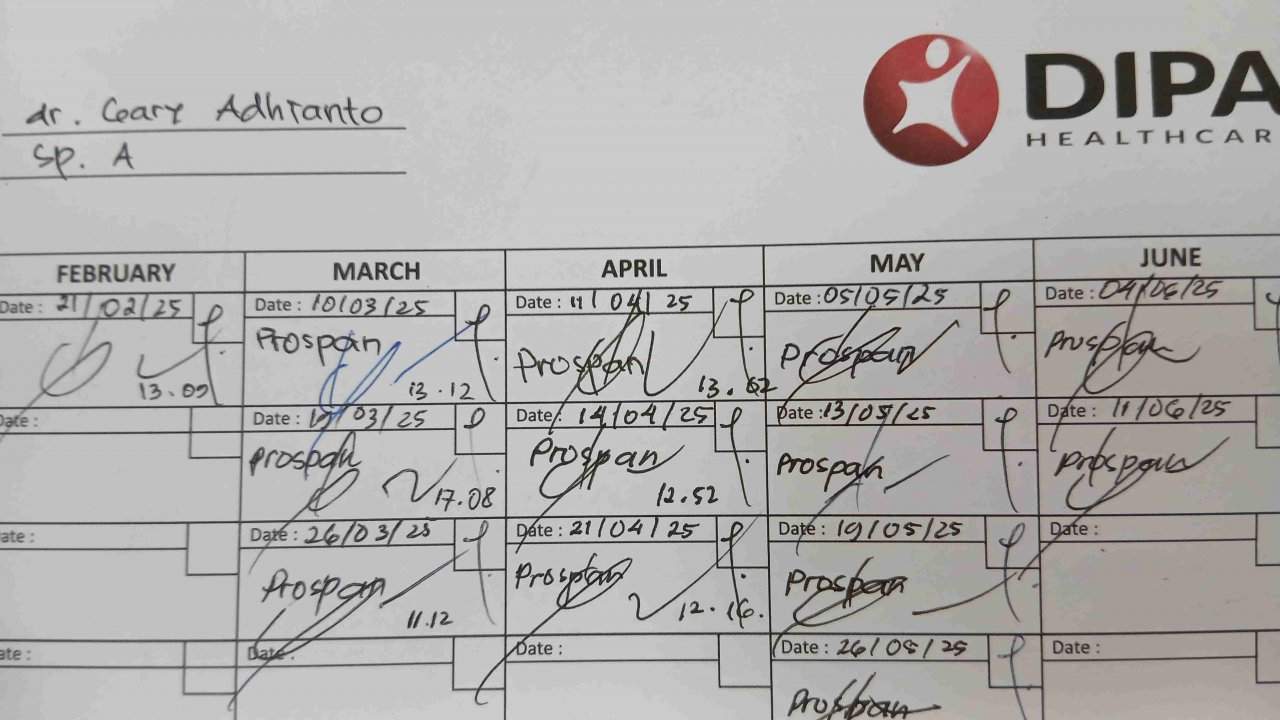 dr. Geary Adhianto
Sp. A
DIPA
HEALTHCAR
FEBRUARY MARCH APRIL MAY JUNE
Date : 21/02/25 Date : 10/03/25 Date : 11/04/25 Date : 05/05/25 Date : 04/06/25
Prospan Prospan Prospan Prospan
13.09 13.12 13.02
Date : Date : /03/25 Date : 14/04/25 Date : 13/05/25 Date : 11/06/25
Prospan Prospan Prospan Prospan
17.08 12.52
ate : Date : 26/03/25 Date : 21/04/25 Date : 19/05/25 Date :
Prospan Prospan Prospan
11.12 12.16.
ate : Date : Date : Date : 26/05/25 Date :
Prospan